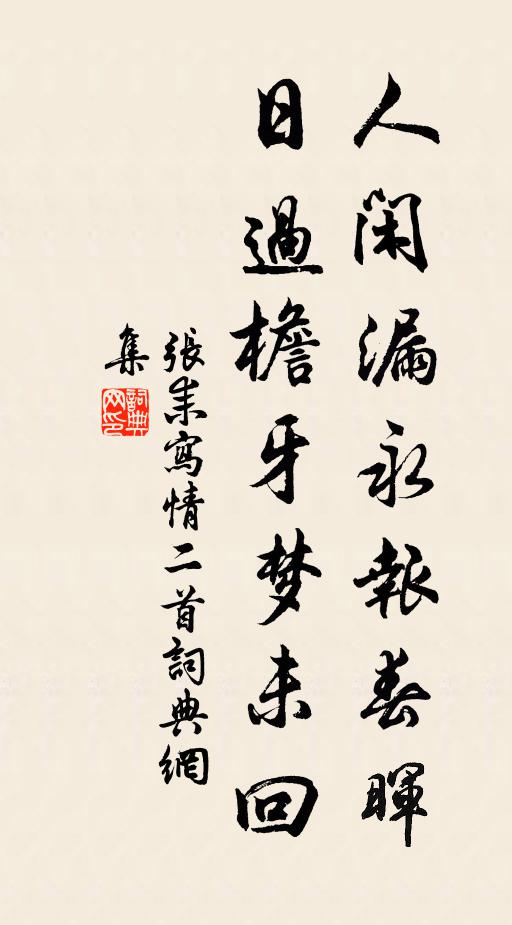 人閑漏永報春暉
日過檐牙梦未回
張耒寫情二首詞典網
集
詞典
网印